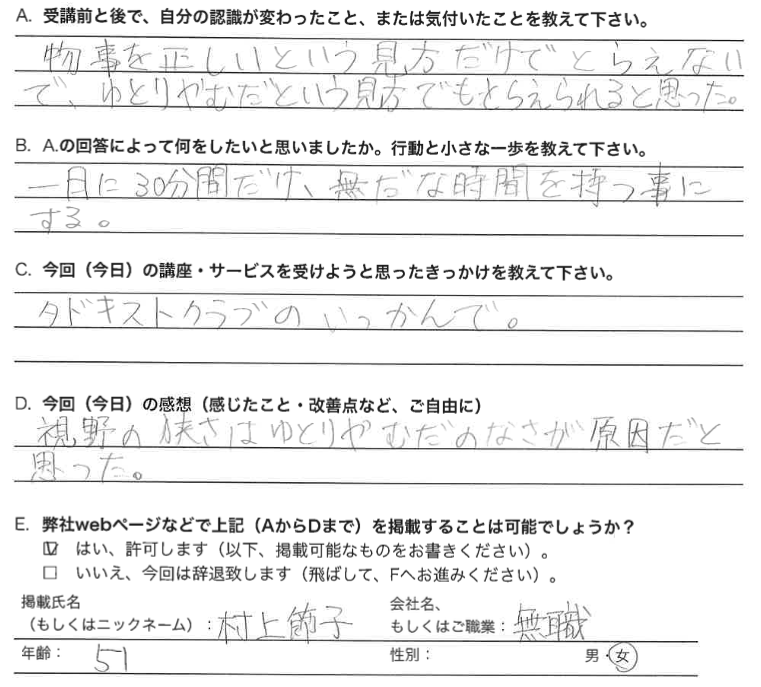 A. 受講前と後で、自分の認識が変わったこと、または気付いたことを教えて下さい。
物事を正しいという見方だけでとらえない
で、ゆとりやむだという見方でもとらえられると思った。
B. A.の回答によって何をしたいと思いましたか。行動と小さな一歩を教えて下さい。
一日に30分間だけ、無だな時間を持つ事に
する。
C. 今回（今日）の講座・サービスを受けようと思ったきっかけを教えて下さい。
タドキストクラブのいっかんで。
D. 今回（今日）の感想（感じたこと・改善点など、ご自由に）
視野の狭さはゆとりやむだのなさが原因だと
思った。
E. 弊社webページなどで上記（AからDまで）を掲載することは可能でしょうか？
☑ はい、許可します（以下、掲載可能なものをお書きください）。
☐ いいえ、今回は辞退致します（飛ばして、Fへお進みください）。
掲載氏名 会社名、
（もしくはニックネーム）：村上節子 もしくはご職業：無職
年齢： 51 性別： 男・女